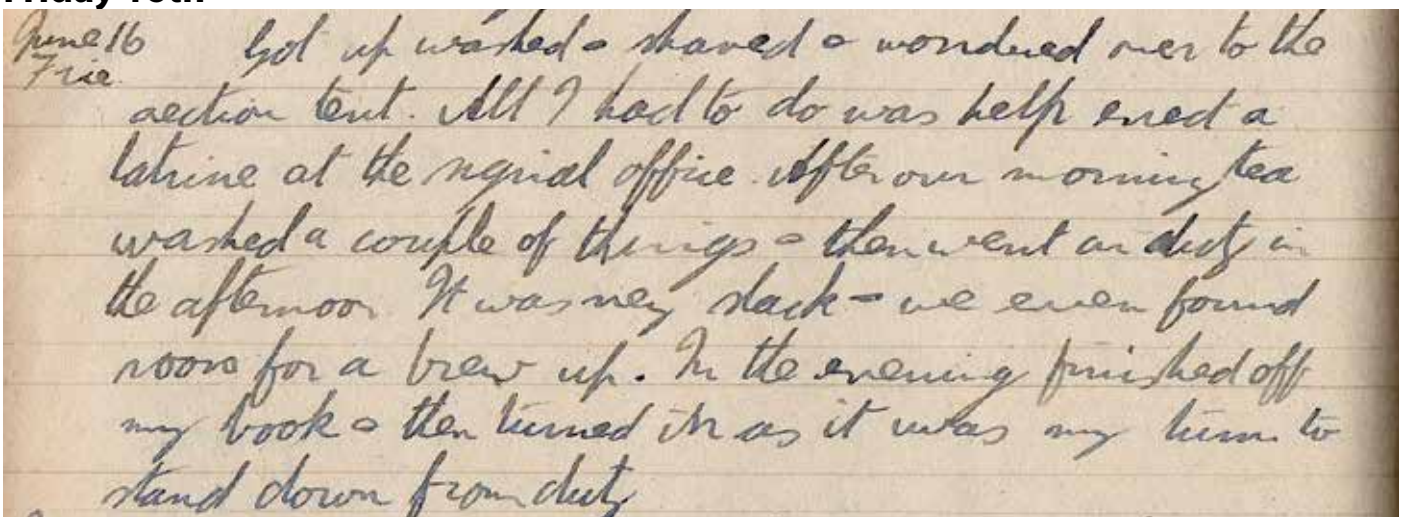 Friday 16th
June 16 Got up washed & shaved & wondered over to the
Frie
section tent. All I had to do was help erect a
latrine at the signal office. After our morning tea
washed a couple of things & then went on duty in
the afternoon It was very slack - we even found
room for a brew up. In the evening finished off
my book & then turned in as it was my turn to
stand down from duty